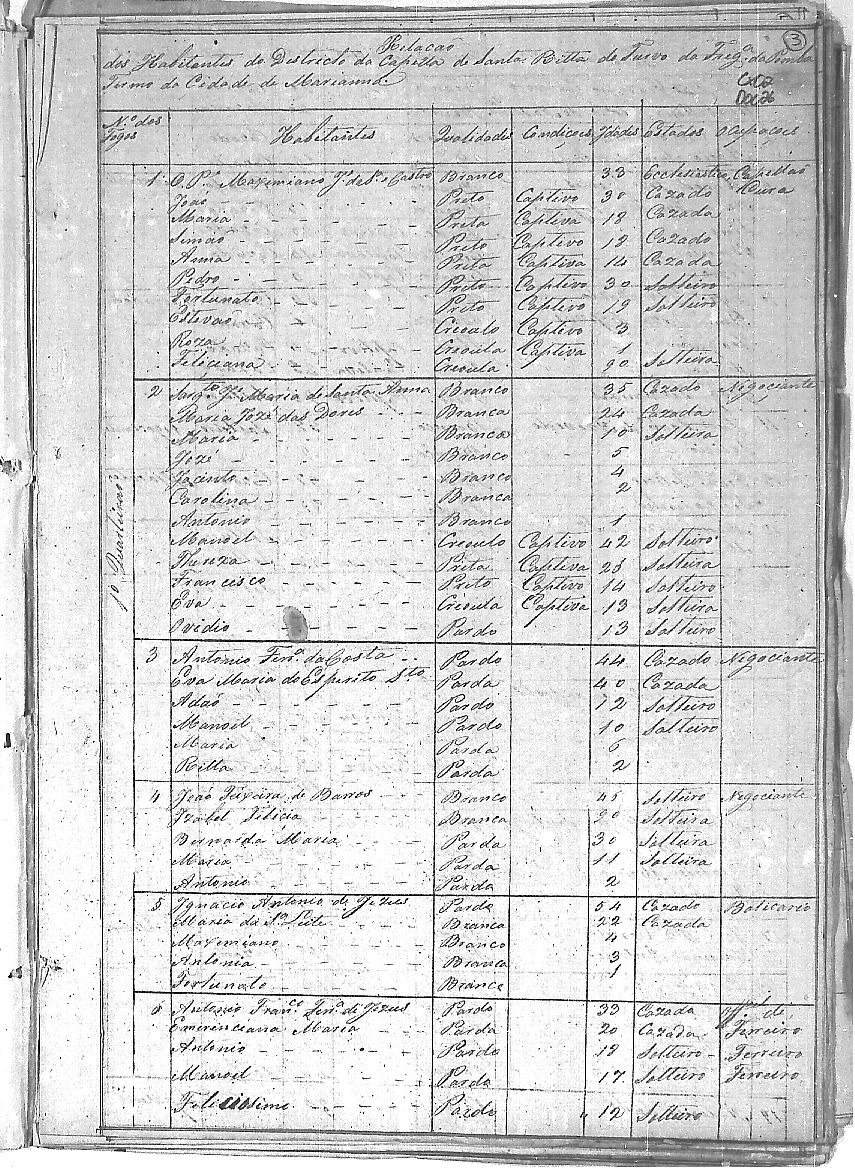 3
Relação
dos Habitantes do Districto da Capella de Santa Ritta do Turvo da Freg.ª da Pomba
Termo da Cidade de Marianna.
CX02
DOC26
N.º dos Fogos Habitantes Qualidades Condições Idades Estados Ocupações
1º Quarteirão
1 O P.e Maximiano J.e de S.ª Castro Branco 33 Ecclesiastico Capellaõ Cura
Joaõ Preto Captivo 30 Cazado
Maria Preta Captiva 18 Cazada
Simaõ Preto Captivo 18 Cazado
Anna Preta Captiva 14 Cazada
Pedro Preto Captivo 30 Solteiro
Fortunato Preto Captivo 19 Solteiro
Estevaõ Creoulo Captivo 3
Roza Creoula Captiva 1
Feliciana Creoula 20 Solteira
2 Sarg.to J.e Maria de Santa Anna Branco 35 Cazado Negociante
Maria Jozé das Dores Branca 24 Cazada
Maria Branca 10 Solteira
Jozé Branco 5
Jacinto Branco 4
Carolina Branca 2
Antonio Branco 1
Manoel Creoulo Captivo 42 Solteiro
Thereza Preta Captiva 25 Solteira
Francisco Preto Captivo 14 Solteiro
Eva Creoula Captiva 13 Solteira
Ovidio Pardo 13 Solteiro
3 Antonio Fern.ª da Costa Pardo 44 Cazado Negociante
Eva Maria do Esperito Sto Parda 40 Cazada
Adaõ Pardo 12 Solteiro
Manoel Pardo 10 Solteiro
Maria Parda 5
Ritta Parda 2
4 Joaõ Teixeira de Barros Branco 45 Solteiro Negociante
Izabel Felicia Branca 20 Solteira
Bernarda Maria Parda 30 Solteira
Maria Parda 11 Solteira
Antonio Pardo 2
5 Ignacio Antonio de Jezus Pardo 54 Cazado Boticario
Maria da S.ª Leite Branca 22 Cazada
Maximiano Branco 4
Antonia Branca 3
Fortunato Branco 1
6 Antonio Fran.co Fern.ª de Jezus Pardo 33 Cazado Off.al de Ferreiro
Emerenciana Maria Parda 20 Cazada
Antonio Pardo 18 Solteiro Ferreiro
Manoel Pardo 17 Solteiro Ferreiro
Felicissimo Pardo 12 Solteiro